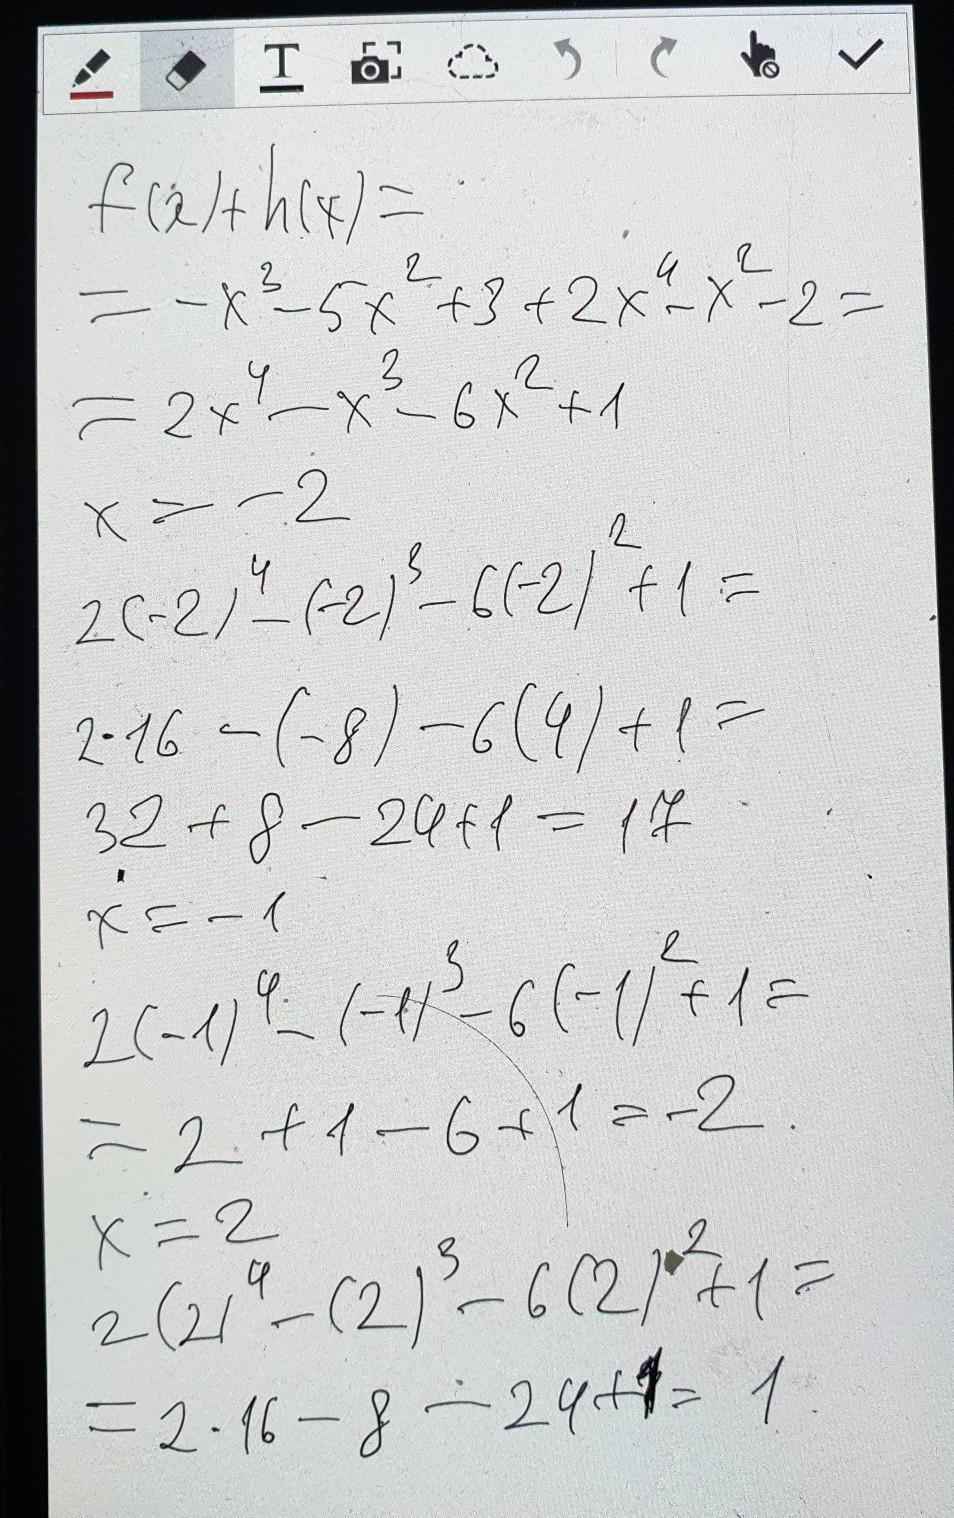 T
f(x)+h(x)=
= -x³-5x²+3+2x⁴-x²-2=
= 2x⁴-x³-6x²+1
x = -2
2(-2)⁴-(-2)³-6(-2)²+1=
2·16-(-8)-6(4)+1=
32+8-24+1=17
x=-1
2(-1)⁴-(-1)³-6(-1)²+1=
= 2+1-6+1=-2.
x=2
2(2)⁴-(2)³-6(2)²+1=
= 2·16-8-24+1= 1